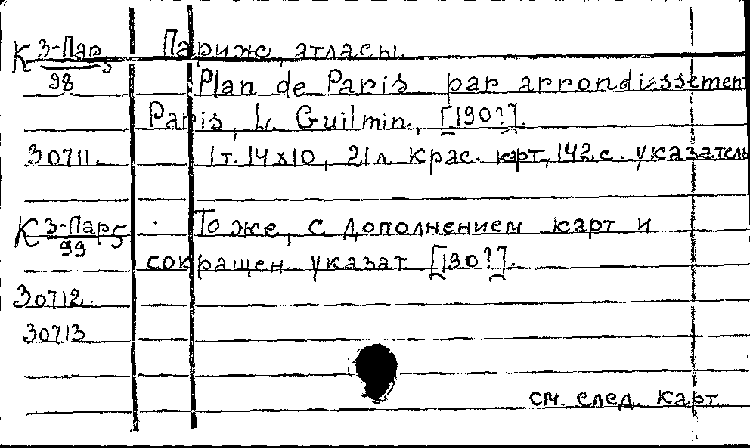 К 3-Пар5 Париж, атласы.
98 Plan de Paris par arrondissement
Paris, L. Guilmin., [190?].
30711. 1т. 14х10, 21л крас. карт, 142 с. указатель
К 3-Пар5 То же, с дополнением карт и
99
сокращен указат [130?].
30712.
30713
см. след. карт.